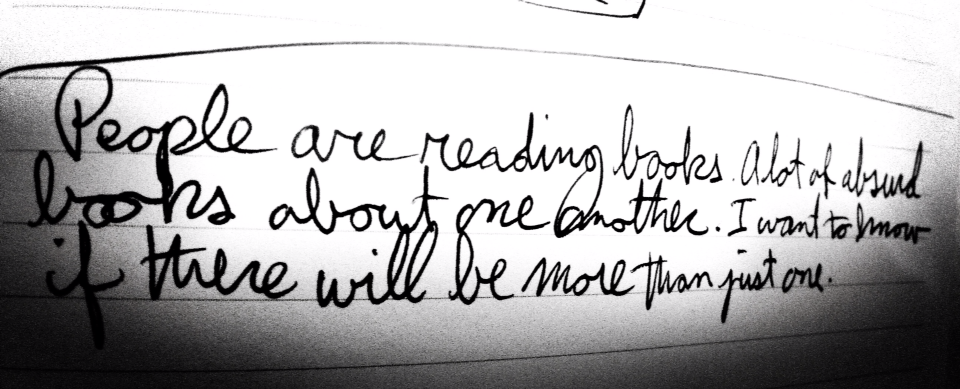 People are reading books. A lot of absurd
books about one another. I want to know
if there will be more than just one.